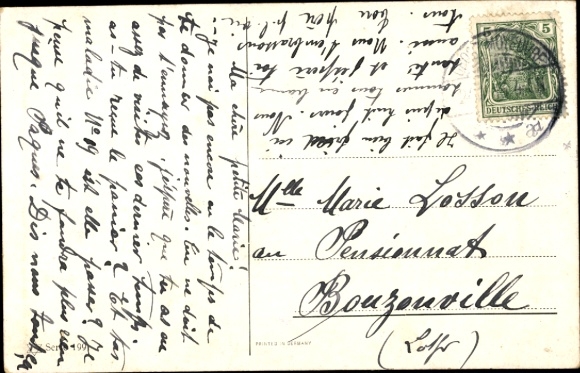 Ma chère petite Marie!
Je n'ai pas encore eu le temps de
te donner des nouvelles. Tu ne dois
pas t'ennuyer, j'espère que tu as eu
assez de visites ces derniers temps.
as-tu reçue le panier? Et ta
maladie No 89 est elle passée? Je
pense qu'il ne te faudra plus rien
jusque Pâques. Dis nous tout
Il fait bien froid ici
depuis huit jours. Nous
sommes tous en bonne
santé et j'espère toi
aussi. Nous t'embrassons
tous.
5
DEUTSCHES REICH
Mlle Marie Losson
au Pensionnat
Bouzonville
(Lothr)
PRINTED IN GERMANY
Serie 199